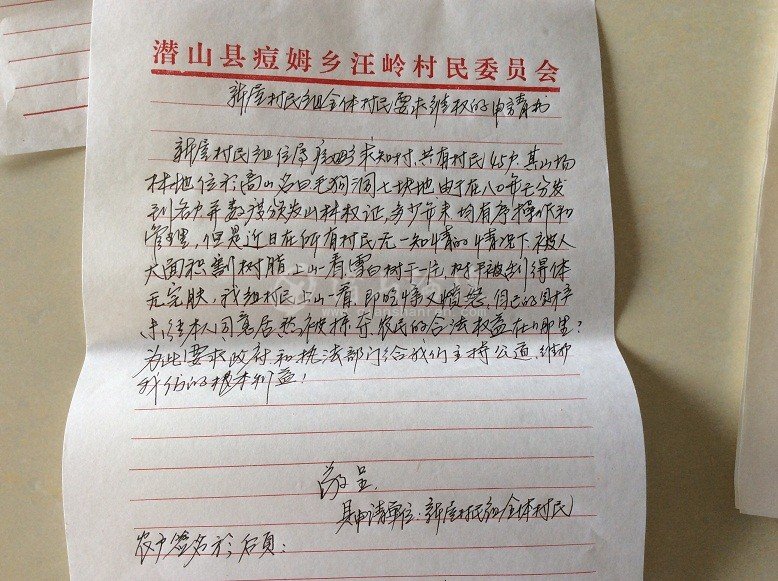 潜山县痘姆乡汪岭村民委员会
新屋村民组全体村民要求维权的申请书
新屋村民组位原痘姆乡求知村,共有村民45户,其山场
林地位于高山名曰毛狗洞七块地由于在八0年元分发
到各户并数谋颁发山林权证,多少年来均有序操作和
管理,但是近日在所有村民无一知情的情况下被人
大面积割树脂上山一看,雪白树干一片,树干被割得体
无完肤,我组村民上山一看,即吃惊又愤怒,自己的财梓
未经本人同意居然被掠夺,农民的合法权益在哪里?
为此,要求政府和执法部门给我们主持公道,维护
我们的根本利益!
敬呈
具申请单位:新屋村民组全体村民
农户签名于后页: